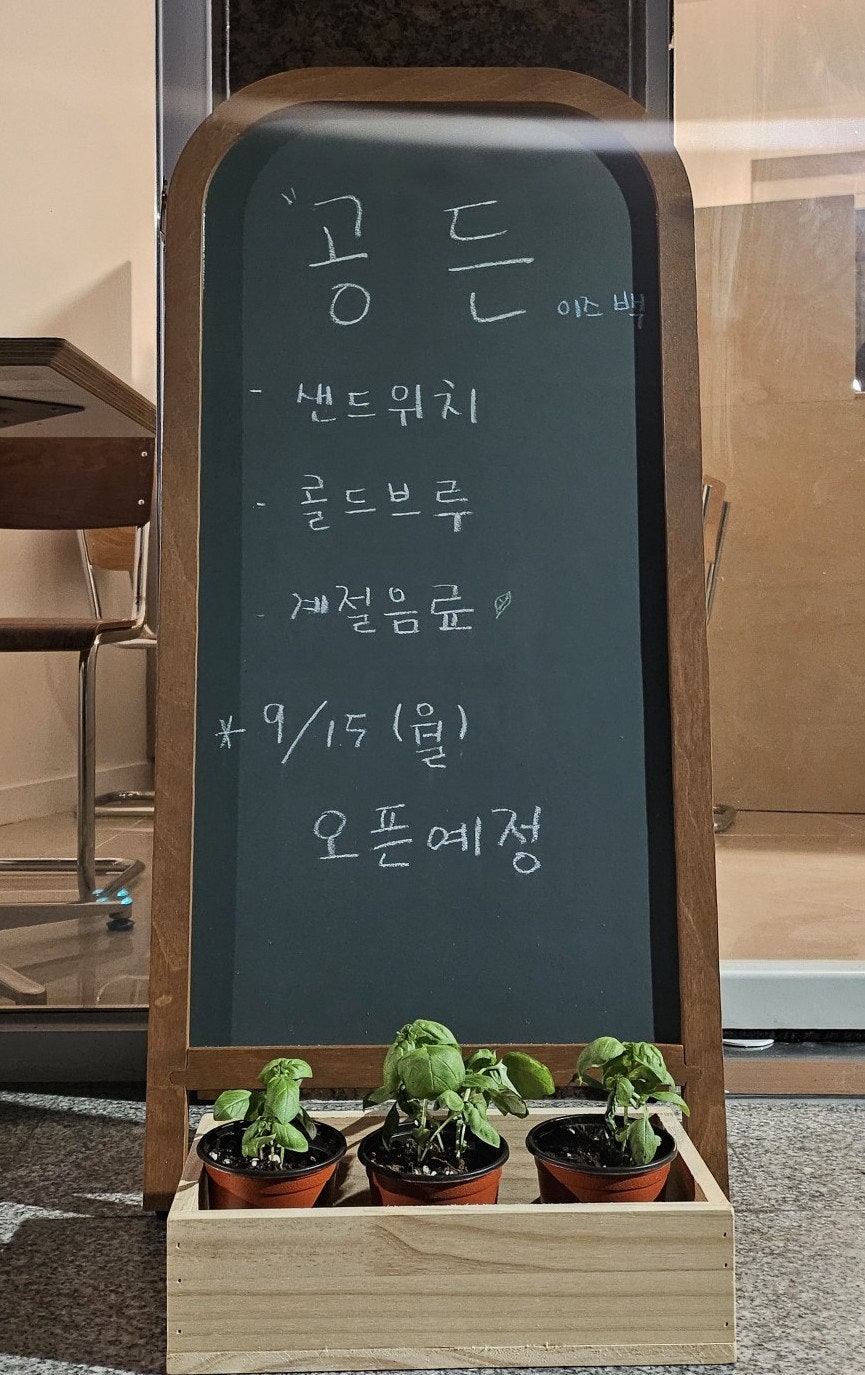 "공 든 이즈 백
- 샌드위치
- 콜드브루
- 계절음료
* 9/15 (월)
오픈예정